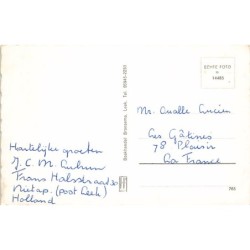 Hartelijke groeten
J. C. M.
Frans Halsstraat 30
Nietap. (post Leek)
Holland
Boekhandel Brinksma, Leek, Tel. 05945-2557
ECHTE FOTO
Mr. Cualle Lucien
Les Gâtines
78 Plaisir
La France